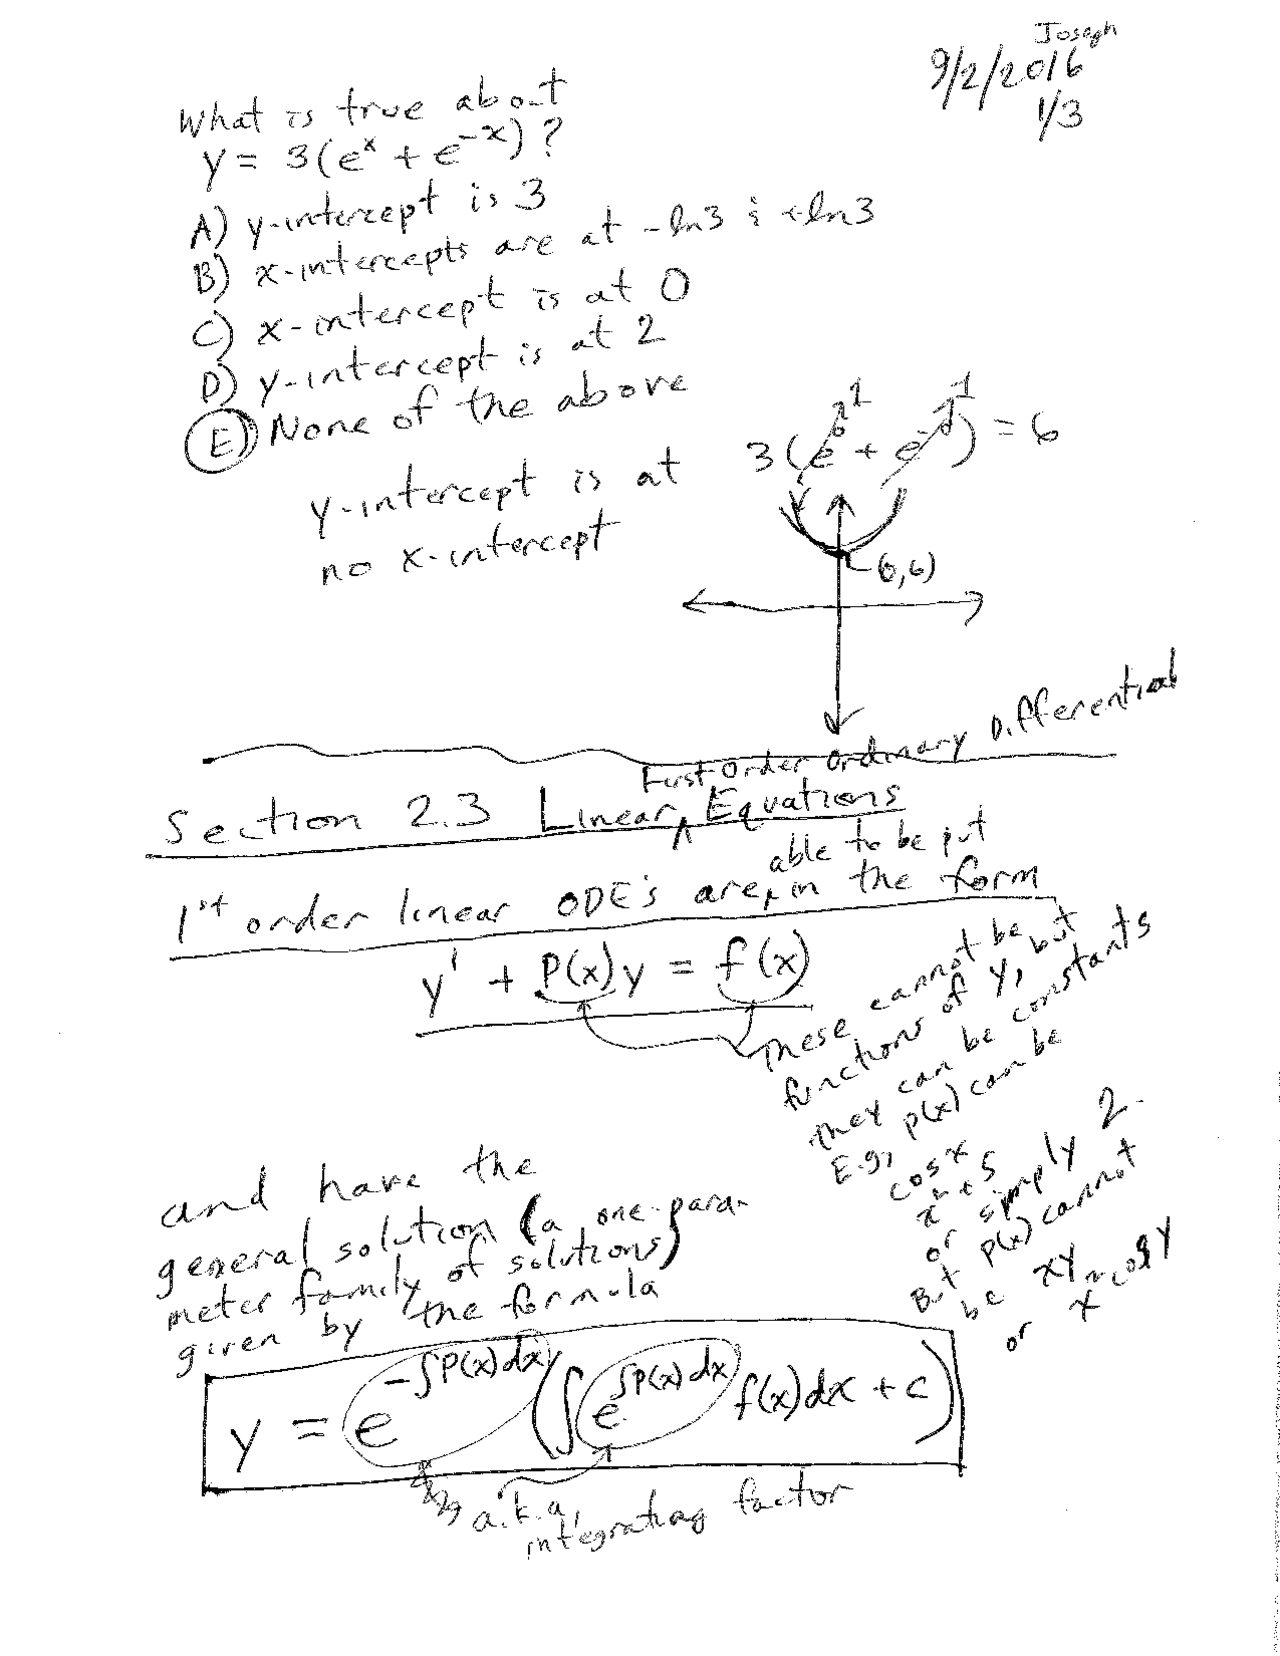 Joseph
9/2/2016
1/3
What is true about
y = 3(eˣ + e⁻ˣ)?
A) y-intercept is 3
B) x-intercepts are at -ln3 & +ln3
C) x-intercept is at 0
D) y-intercept is at 2
E) None of the above
y-intercept is at 3(e⁰ + e⁻⁰) = 6
1 1
no x-intercept
(0,6)
First-Order Ordinary Differential
Section 2.3 Linear ^ Equations
able to be put
1ˢᵗ order linear ODE's are ^ in the form
y' + P(x)y = f(x)
These cannot be
functions of y, but
they can be constants
E.g., p(x) can be
cos x
x² + 5
or simply 2.
But p(x) cannot
be xy
or x² cos y
and have the
general solution (a one-para-
meter family of solutions)
given by the formula
y = e^(-∫P(x)dx) (∫ e^(∫P(x)dx) f(x)dx + c)
a.k.a.
integrating factor